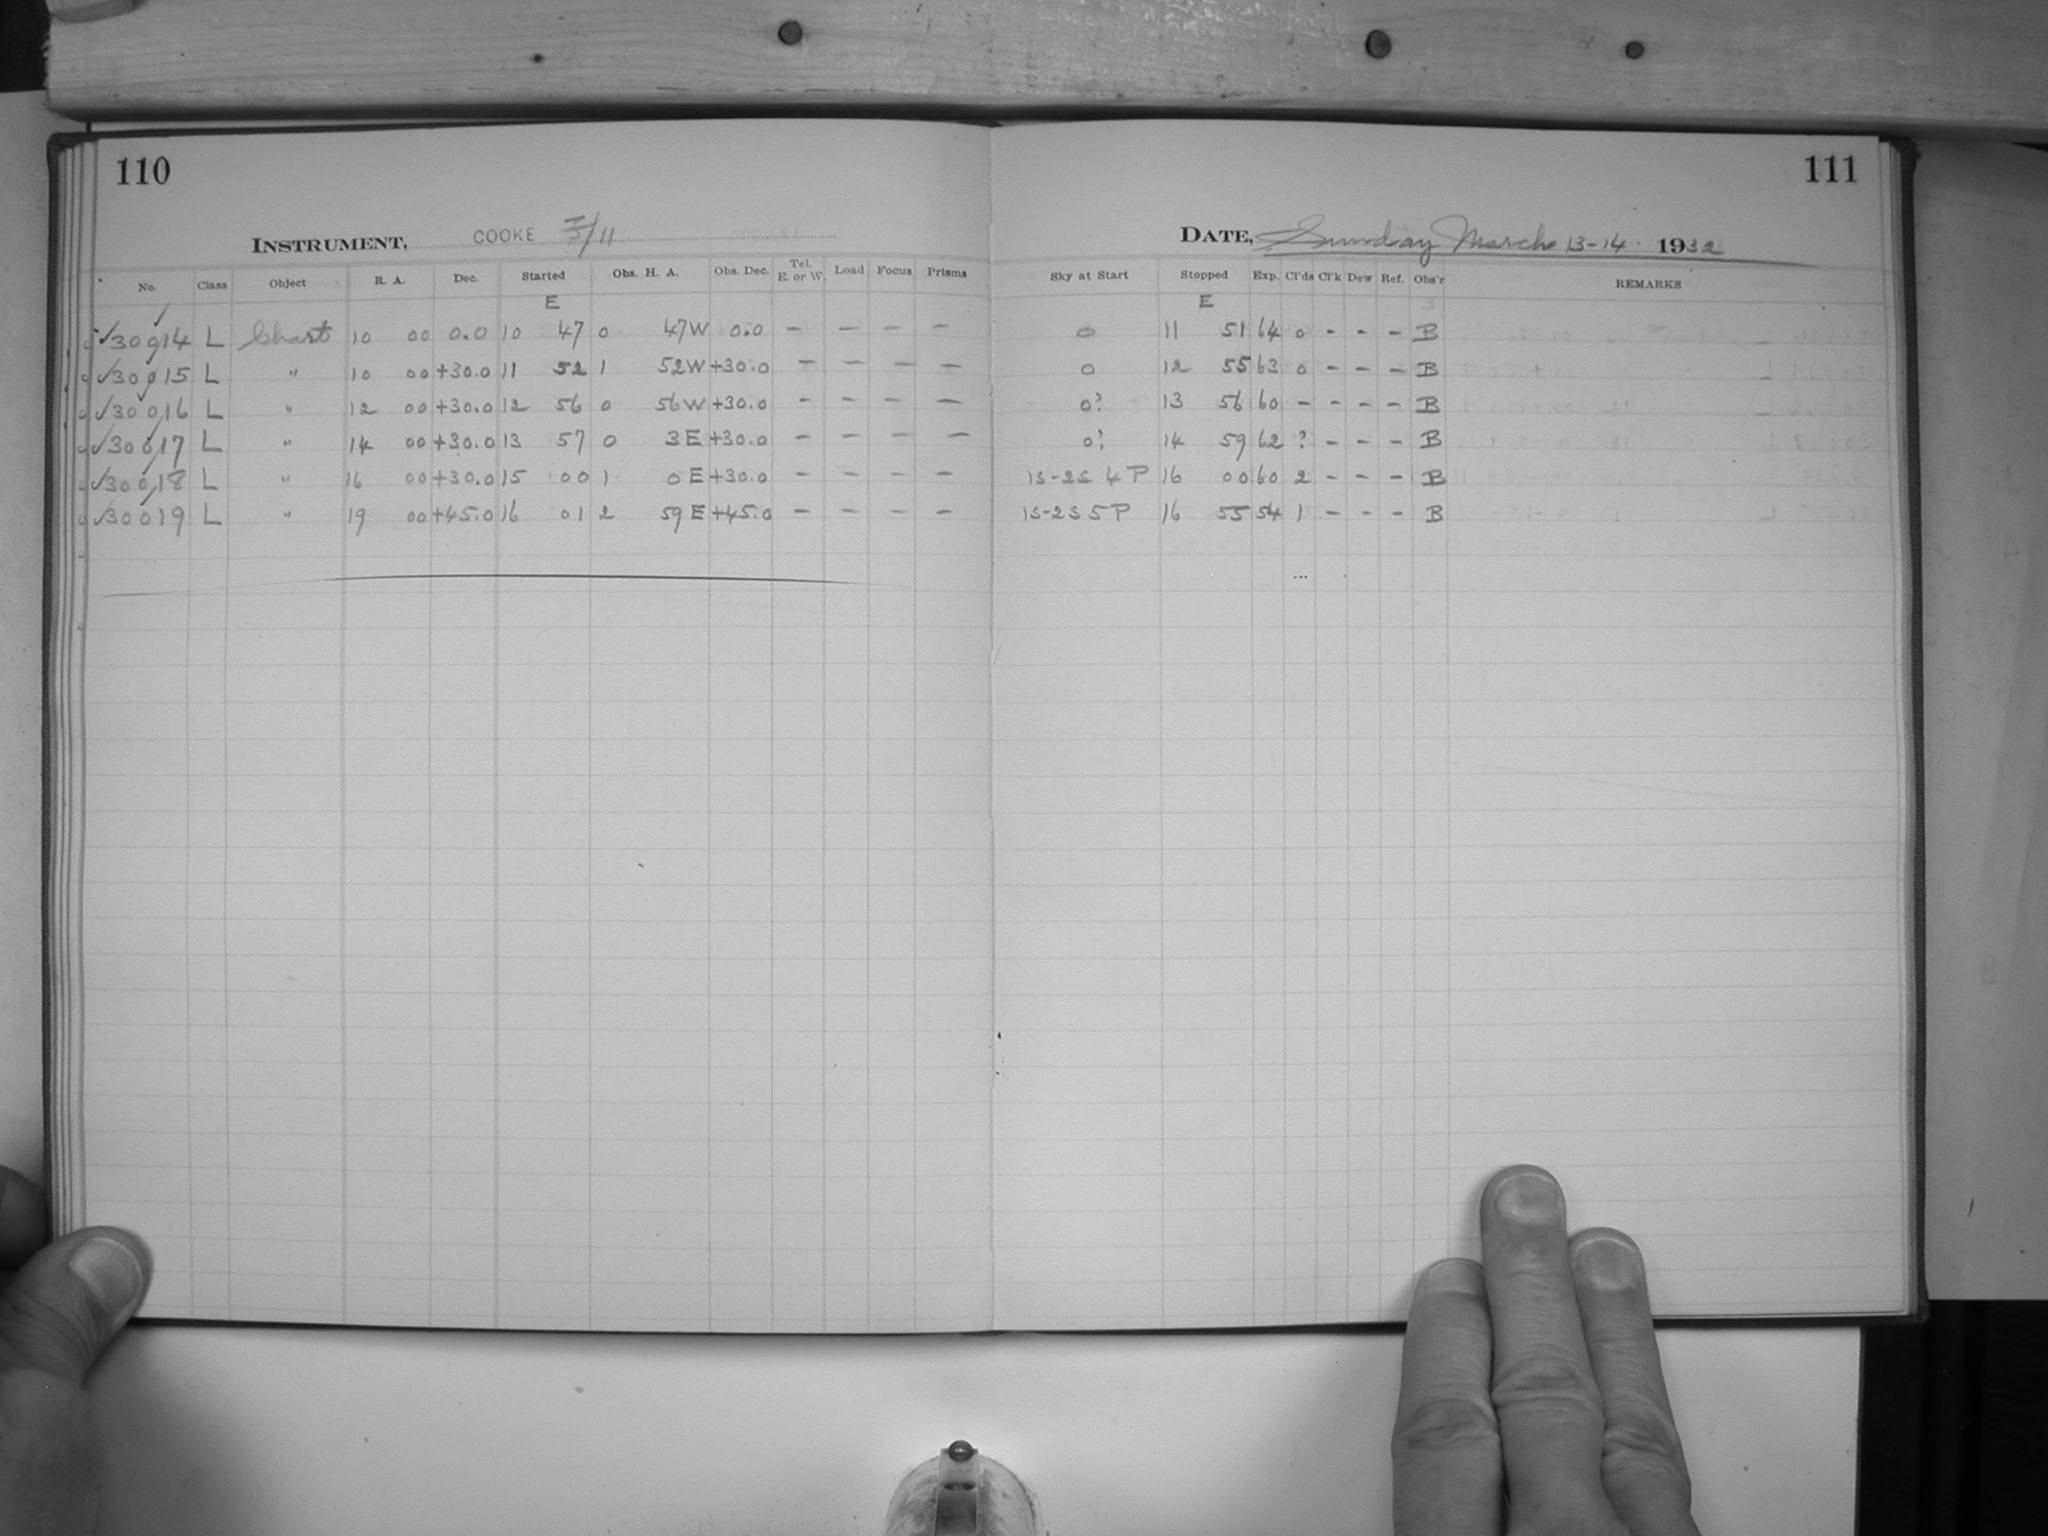 110
111
INSTRUMENT, COOKE
DATE, Sunday March 13-14. 1932
No. Class Object R. A. Dec. Started Obs. H. A. Obs. Dec. Tel. E. or W. Load Focus Prisms Sky at Start Stopped Exp. Cl'ds Cl'k Dew Ref. Obs'r REMARKS
E E
✓30014 L Chart 10 00 0.0 10 47 0 47W 0.0 — — — — 0 11 51 64 0 - - - B
✓30015 L " 10 00 +30.0 11 52 1 52W +30.0 — — — — 0 12 55 63 0 - - - B
✓30016 L " 12 00 +30.0 12 56 0 56W +30.0 — — — — 0? 13 56 60 - - - - B
✓30017 L " 14 00 +30.0 13 57 0 3E +30.0 — — — — 0? 14 59 62 ? - - - B
✓30018 L " 16 00 +30.0 15 00 1 0E +30.0 — — — — 1S-2S 4P 16 00 60 2 - - - B
✓30019 L " 19 00 +45.0 16 01 2 59E +45.0 — — — — 1S-2S 5P 16 55 54 1 - - - B